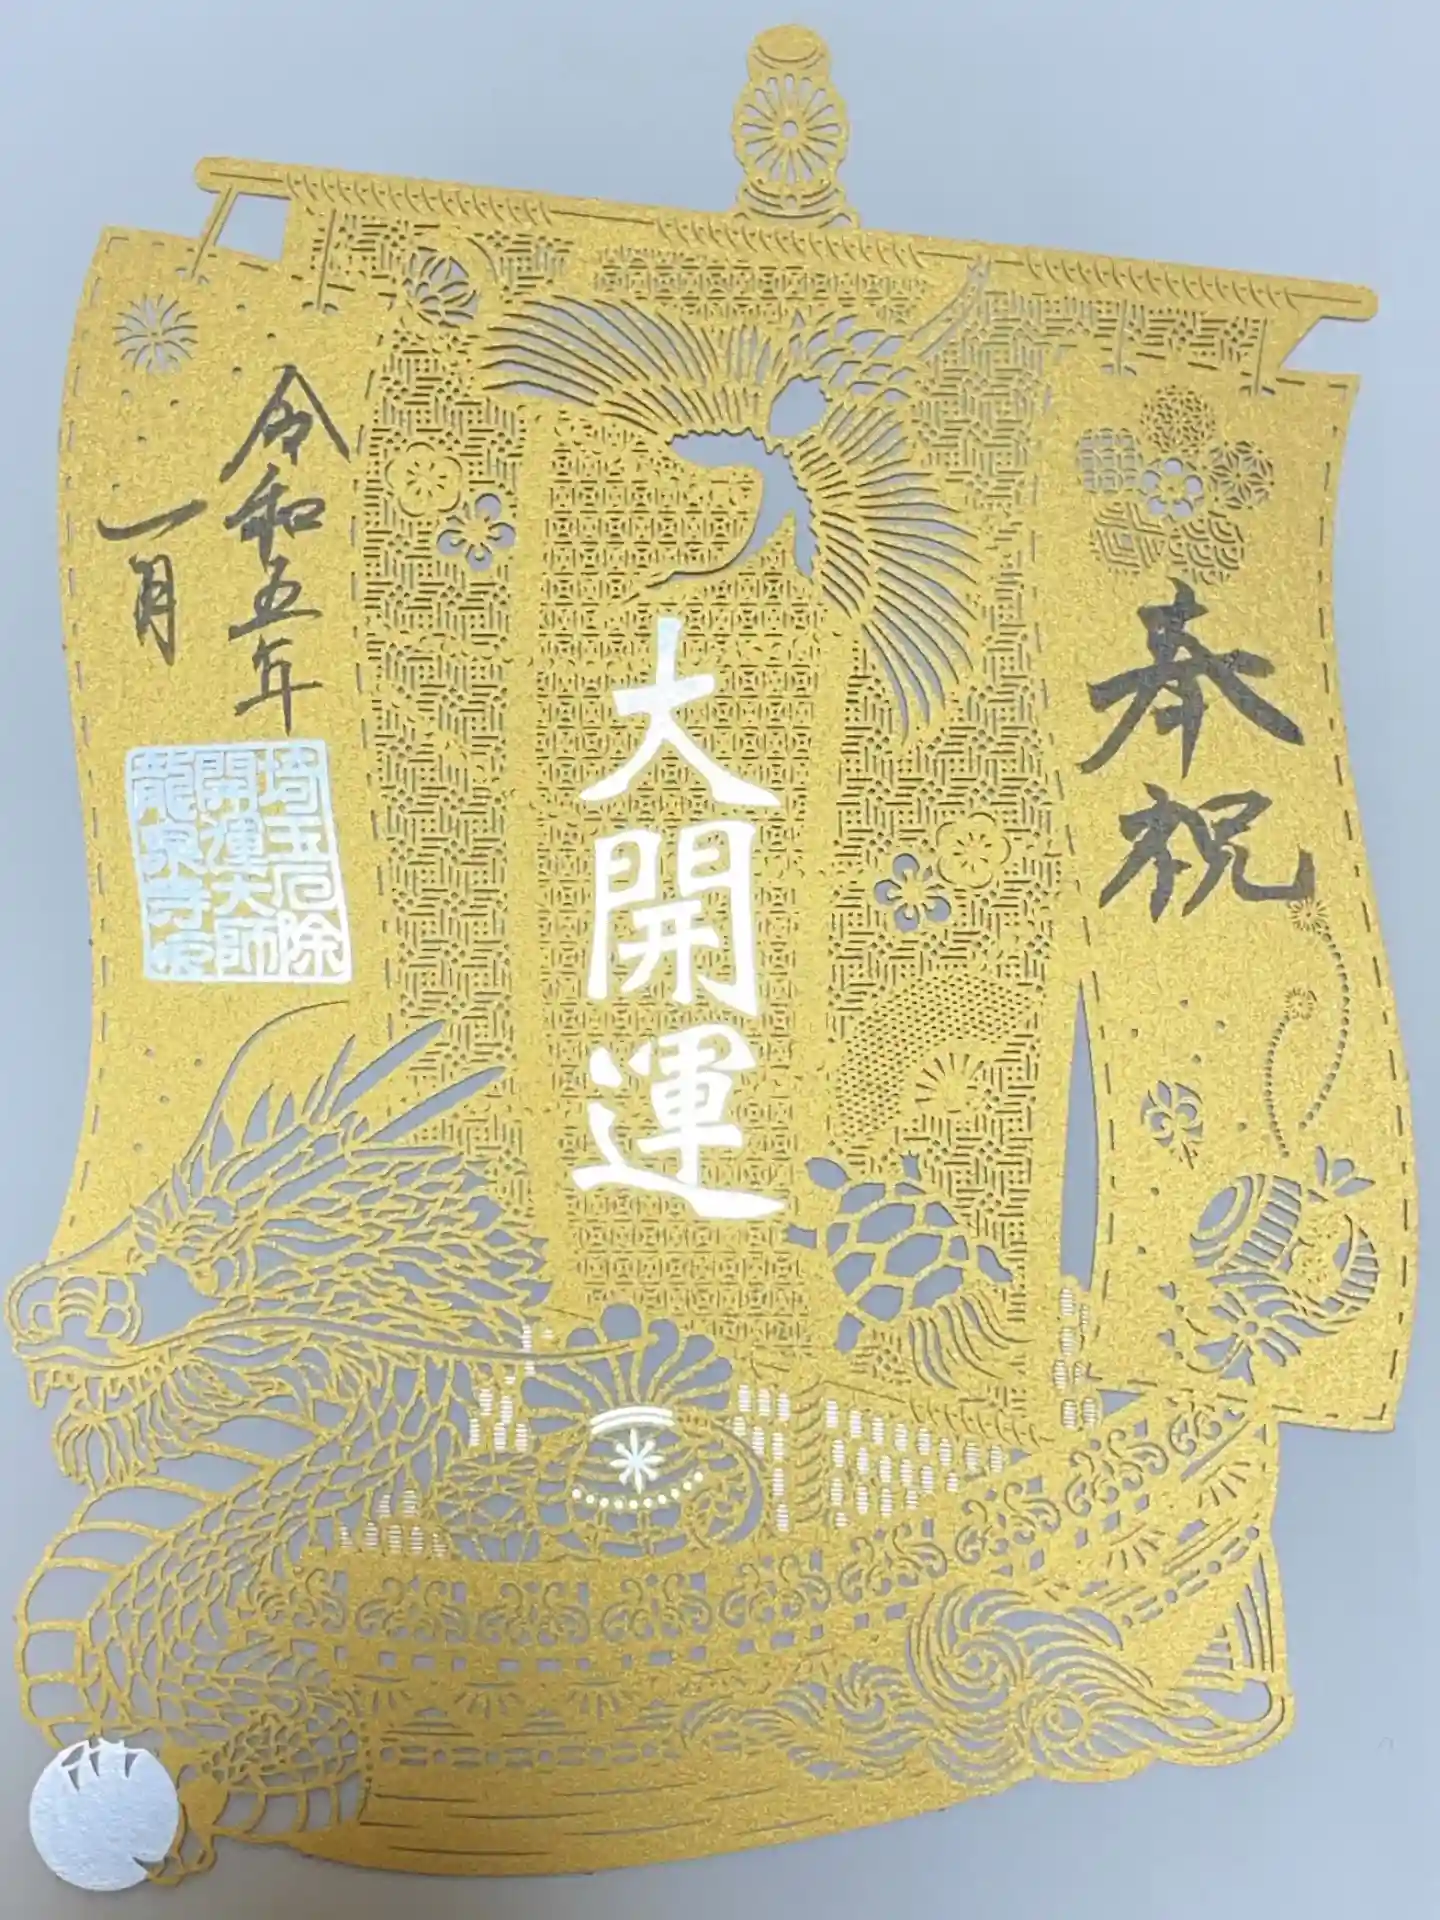 奉祝
大開運
令和五年
一月
埼玉厄除
開運大師
龍泉寺印